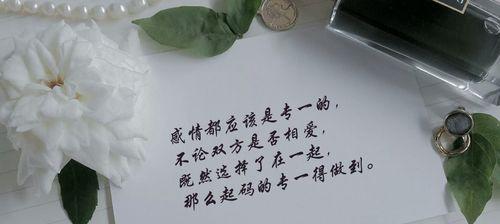 感情都应该是专一的，
不论双方是否相爱，
既然选择了在一起，
那么起码的专一得做到。